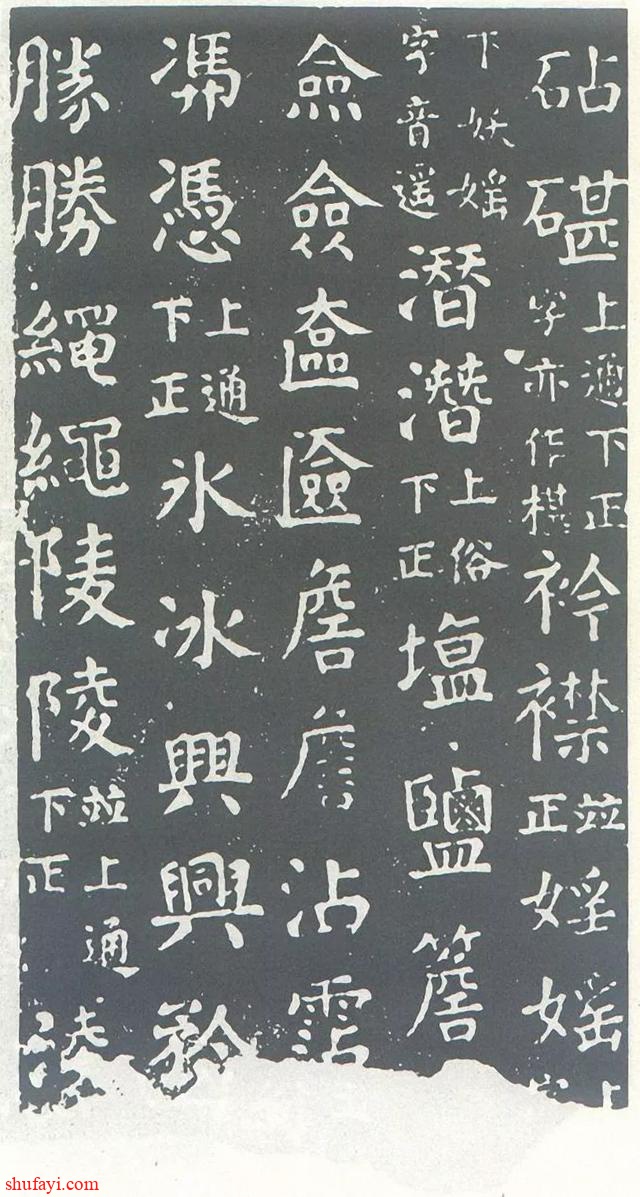 砧碪上通下正字亦作椹衿襟並正婬媱
下妖媱字音遥潛潜上俗下正塩鹽簷
僉僉奩匳詹詹沾霑
凴憑上通下正氷冰興興矜
勝勝縄繩陵陵並上通下正
shufayi.com